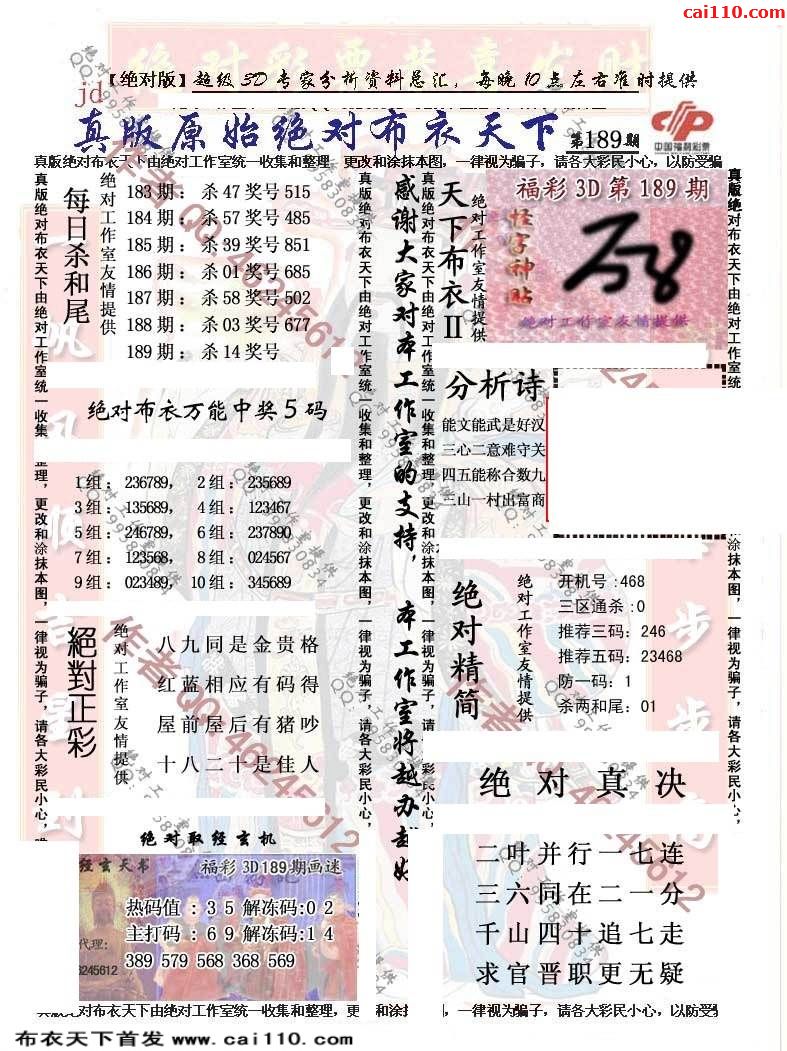 cai110.com
jd
【绝对版】超级3D专家分析资料总汇，每晚10点左右准时提供
真版原始绝对布衣天下 第189期
中国福利彩票
真版绝对布衣天下由绝对工作室统一收集和整理，更改和涂抹本图，一律视为骗子，请各大彩民小心，以防受骗
每日杀和尾
绝对工作室友情提供
183期：杀47奖号515
184期：杀57奖号485
185期：杀39奖号851
186期：杀01奖号685
187期：杀58奖号502
188期：杀03奖号677
189期：杀14奖号
绝对布衣万能中奖5码
1组：236789， 2组：235689
3组：135689， 4组：123467
5组：246789， 6组：237890
7组：123568， 8组：024567
9组：023489， 10组：345689
絕對正彩
绝对工作室友情提供
八九同是金贵格
红蓝相应有码得
屋前屋后有猪吵
十八二十是佳人
绝对取经玄机
经玄天书
福彩3D189期画迷
热码值：35解冻码:02
主打码：69解冻码:14
389 579 568 368 569
代理:
6245612
真版绝对布衣天下由绝对工作室统一收集和整理，更改和涂抹本图，一律视为骗子，请各大彩民小心，
感谢大家对本工作室的支持，本工作室将越办越好
真版绝对布衣天下由绝对工作室统一收集和整理，更改和涂抹本图，一律视为骗子，请各大彩民小心，
天下布衣II
绝对工作室友情提供
福彩3D第189期
怪字神贴
绝对工作室友情提供
分析诗
能文能武是好汉
三心二意难守关
四五能称合数九
二山一村出富商
绝对精简
绝对工作室友情提供
开机号:468
三区通杀:0
推荐三码：246
推荐五码：23468
防一码：1
杀两和尾：01
绝对真决
二叶并行一七连
三六同在二一分
千山四十追七走
求官晋职更无疑
真版绝对布衣天下由绝对工作室统一收集和整理，更改和涂抹本图，一律视为骗子，请各大彩民小心，以防受骗
布衣天下首发 www.cai110.com